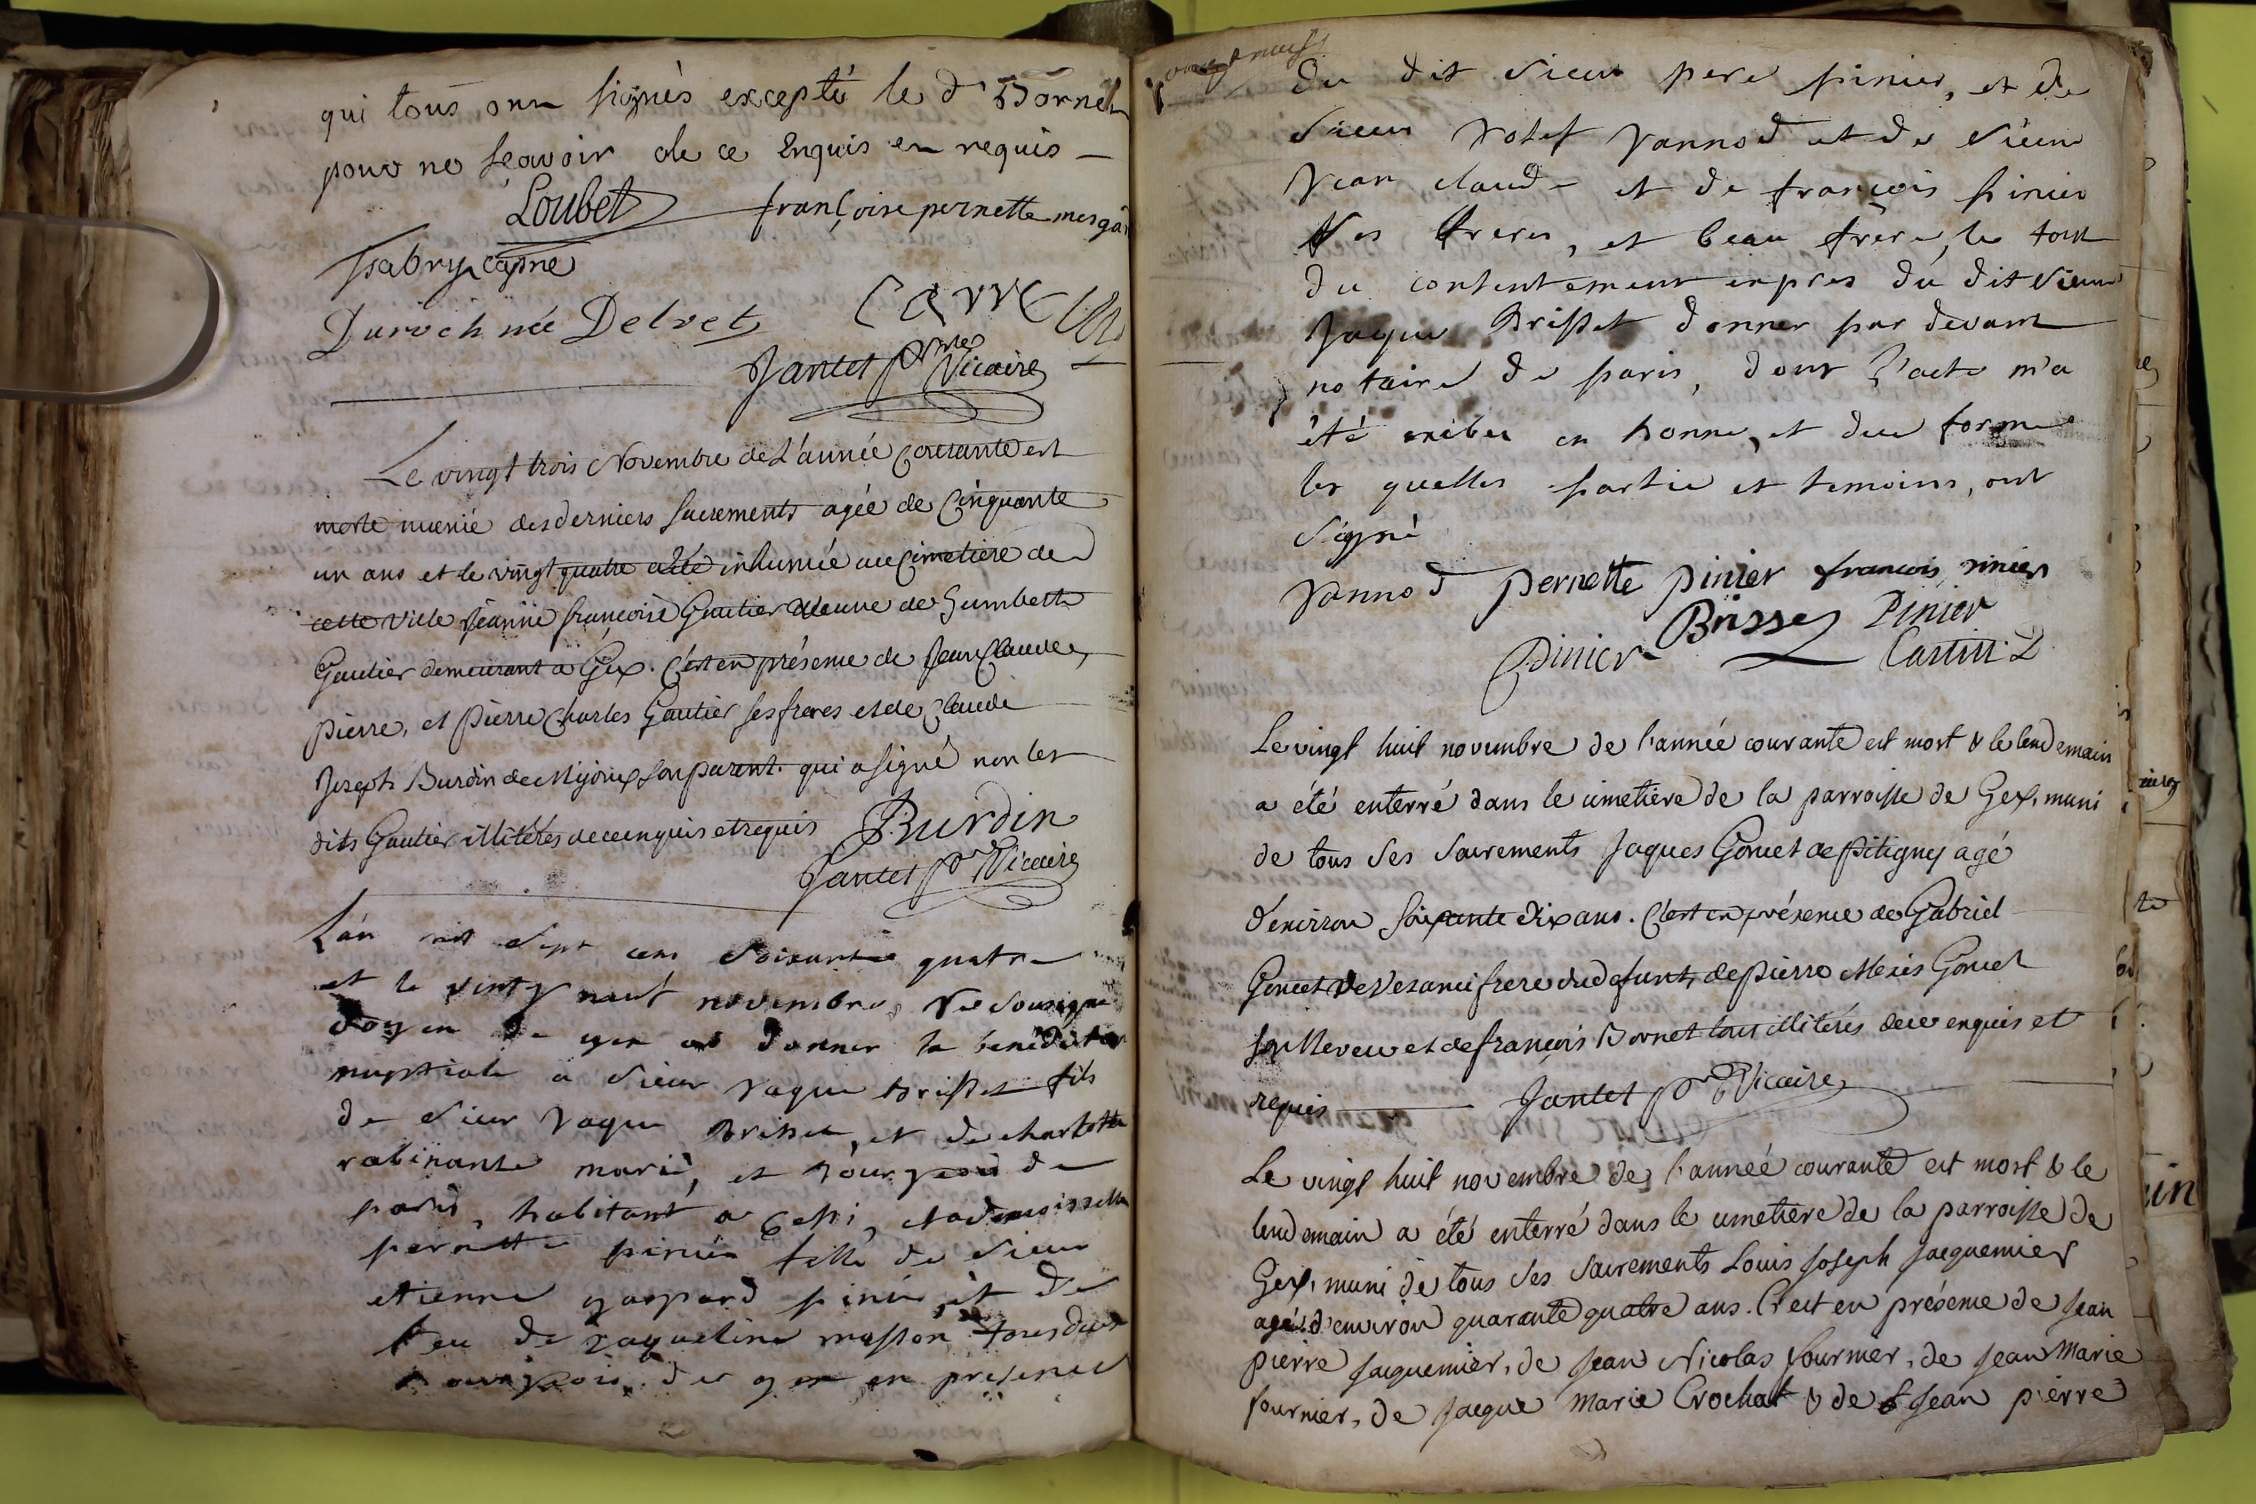 qui tous ont signés excepté le dt Bornet
pour ne sçavoir de ce Enquis en requis
Loubet françoise pernette mesga
Isabry cayme
Duroch née Delvet
Jantet ptre Vicaire
Le vingt trois Novembre de L'année courante est
morte munie des derniers Sacrements agée de Cinquante
un ans et le vingt quatre a été inhumée au Cimetiere de
cette ville Jeanne françoise Gautier Veuve de Gumbette
Gautier demeurant a Gex. C'est en présence de Jean Claude,
pierre, et pierre Charles Gautier ses freres et de Claude
Joseph Burdin de Mijoux son parent qui a signé non les
dits Gautier illitérés de ce enquis et requis Burdin
Jantet ptre Vicaire
L'an mil sept cens soixante quatre
et le vingt neuf novembre, Je sousigné
doyen de gex ai donner la benediction
nuptiale a sieur Jaque Brisset fils
de sieur Jaque Brisset, et de charlotte
rabinante mariè, et Bourgeois de
paris, habitant a Cessi, et a demoisselle
pernette pinier fille de sieur
etienne gaspard pinier, et de
feu de jaqueline masson tous deux
bourgeois de gex en presence
du dit sieur pere pinier, et de
sieur Josef Vannod et de sieur
Jean claude et de françois pinier
ses freres, et beau frere, le tout
du consentement expres du dit sieur
Jaque Brisset donner par devant
notaire de paris, dont l'acte m'a
été exibée en bonne, et due forme
les quelles partie et temoins, ont
signé
Vannod pernette pinier francois pinier
Brisset Pinier
Pinier Castin D
Le vingt huit novembre de l'année courante est mort & le lendemain
a été enterré dans le cimetière de la parroisse de Gex, muni
de tous ses sacrements Jaques Goncet de Pitigny agé
d'environ soixante dix ans. C'est en présence de Gabriel
Goncet de Vesanci frere du defunt, de pierre Goncet
son Neveu et de françois Bornet tous illitérés de ce enquis et
requis Jantet ptre Vicaire
Le vingt huit novembre de l'année courante est mort & le
lendemain a été enterré dans le cimetiere de la parroisse de
Gex, muni de tous ses sacrements Louis Joseph Jacquemier
agé d'environ quarante quatre ans. C'est en présence de Jean
pierre Jacquemier, de Jean Nicolas fournier, de Jean Marie
fournier, de Jacque Marie Crochat & de Jean pierre